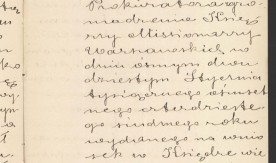 Prokuratora gro
madzenia Księ
ży Missionarzy
Warszawskich w
dniu ósmym dwu
dziestym Stycznia
tysiącznego ośmset
nego czterdzieste
go siódmego roku
wydanego na wnio
sek w Księdze wie